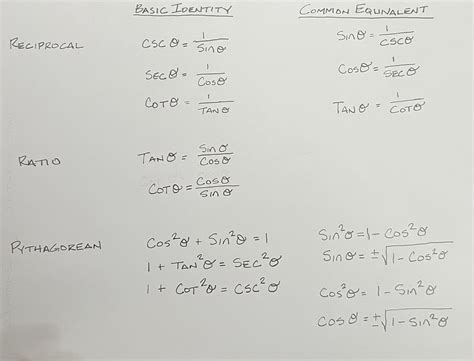 BASIC IDENTITY COMMON EQUIVALENT
RECIPROCAL CSC θ = 1/Sin θ Sin θ = 1/CSC θ
SEC θ = 1/Cos θ Cos θ = 1/SEC θ
COT θ = 1/TAN θ TAN θ = 1/COT θ
RATIO TAN θ = Sin θ/Cos θ
COT θ = Cos θ/Sin θ
PYTHAGOREAN Cos²θ + Sin²θ = 1 Sin²θ = 1 - Cos²θ
Sin θ = ±√(1 - Cos²θ)
1 + TAN²θ = SEC²θ
1 + COT²θ = CSC²θ Cos²θ = 1 - Sin²θ
Cos θ = ±√(1 - Sin²θ)